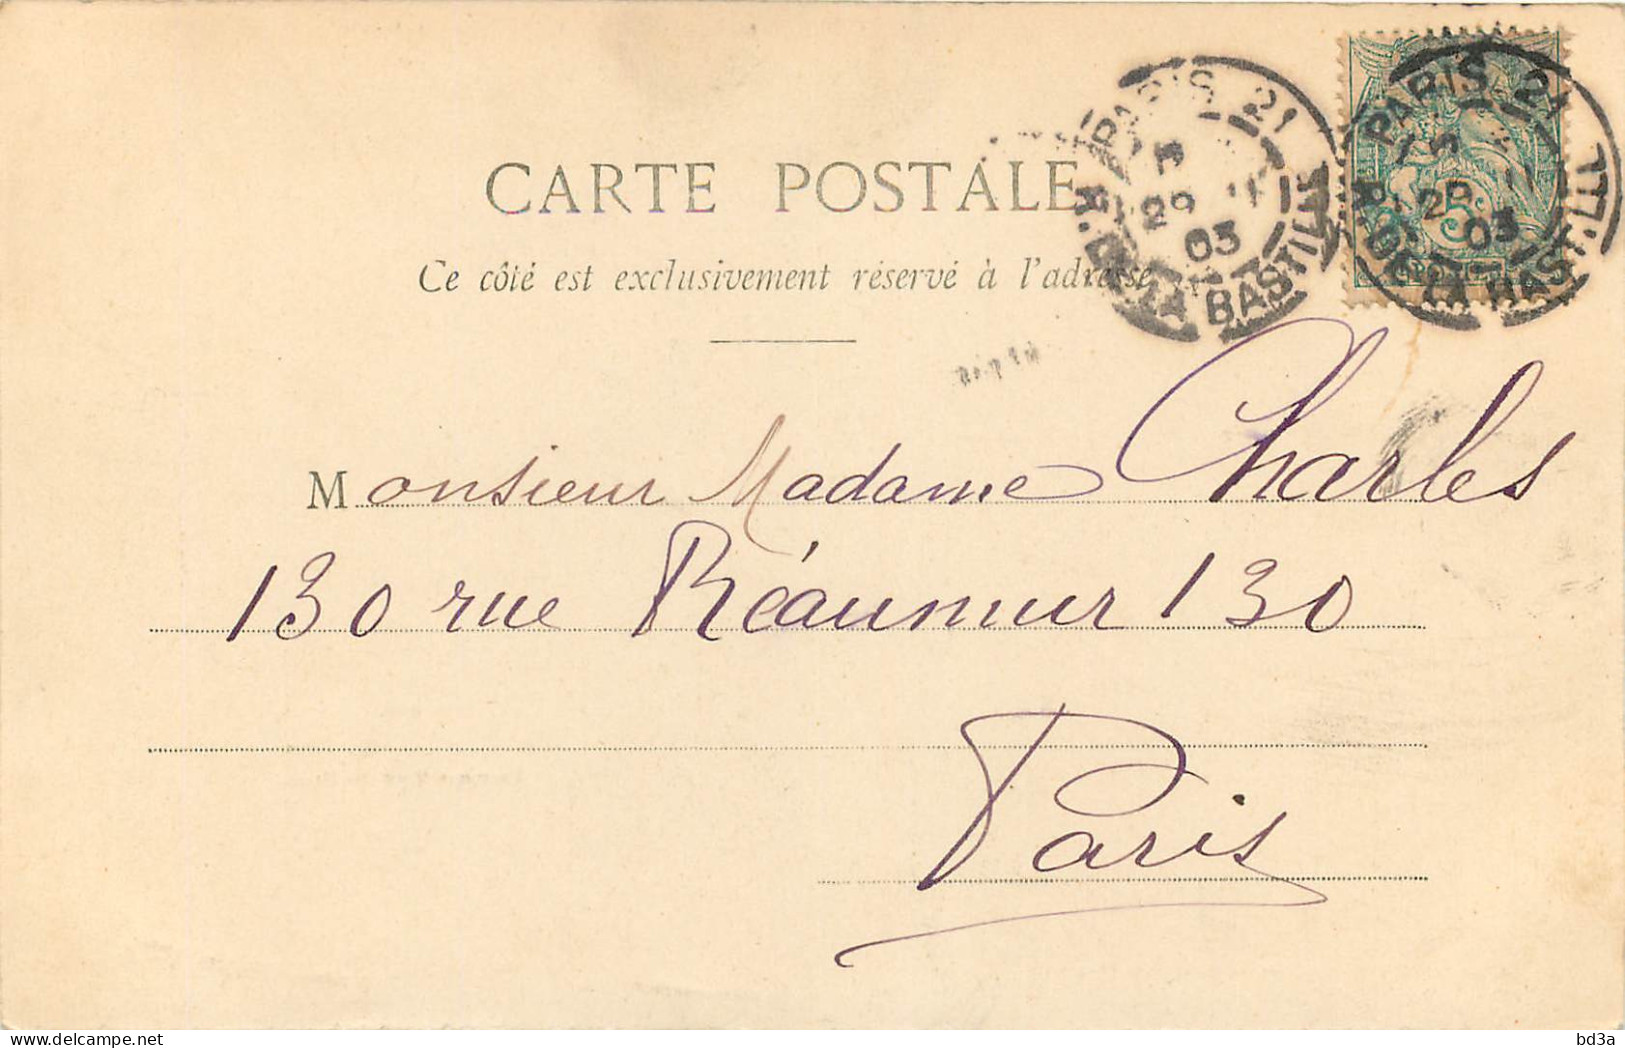 CARTE POSTALE
Ce côté est exclusivement réservé à l'adresse
PARIS 21
29 11
03
R. DE LA BASTILLE
PARIS 21
25 11
03
R. DE LA BASTILLE
Monsieur Madame Charles
130 rue Réaumur 130
Paris
bd3a